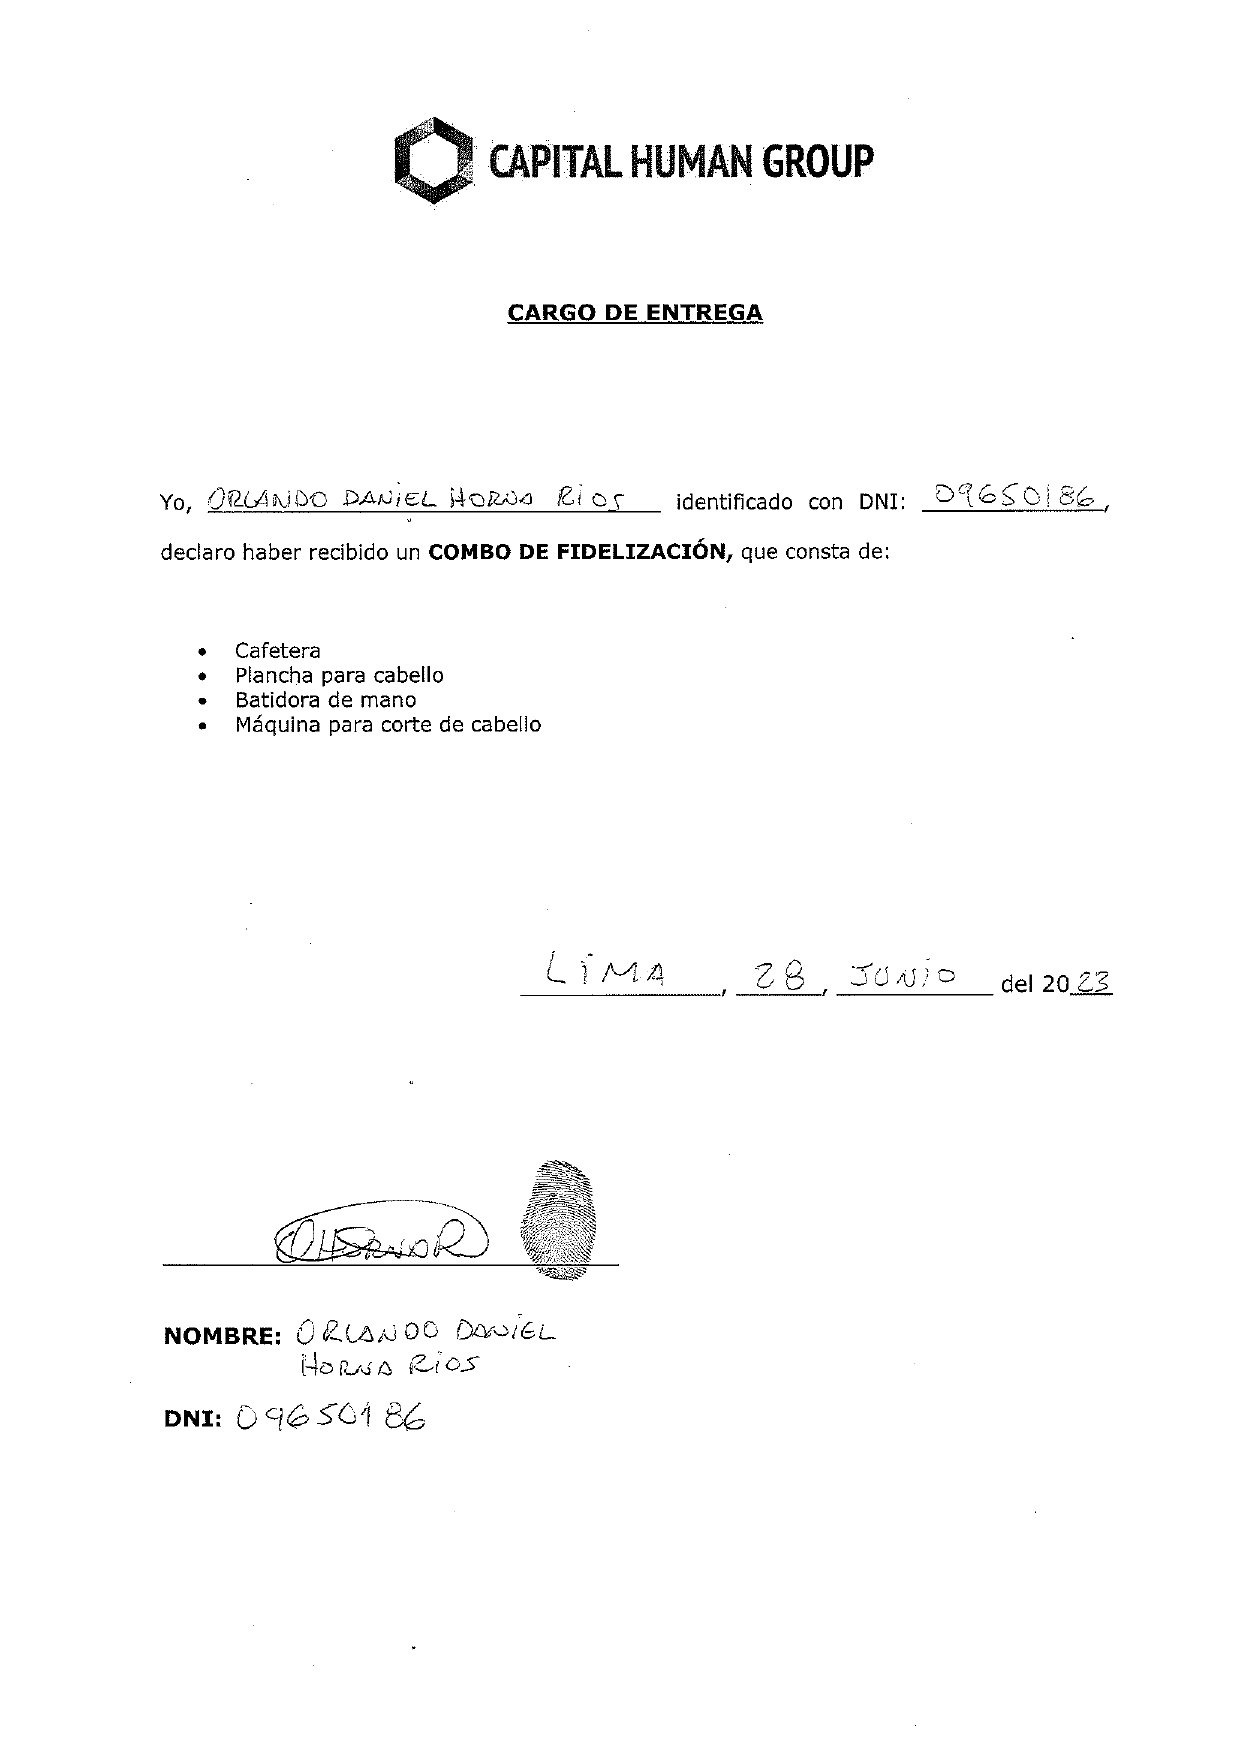 CAPITAL HUMAN GROUP
CARGO DE ENTREGA
Yo, ORLANDO DANIEL HORNA RIOS identificado con DNI: 09650186,
declaro haber recibido un COMBO DE FIDELIZACIÓN, que consta de:
• Cafetera
• Plancha para cabello
• Batidora de mano
• Máquina para corte de cabello
LIMA, 28, JUNIO del 2023
NOMBRE: ORLANDO DANIEL
HORNA RIOS
DNI: 09650186